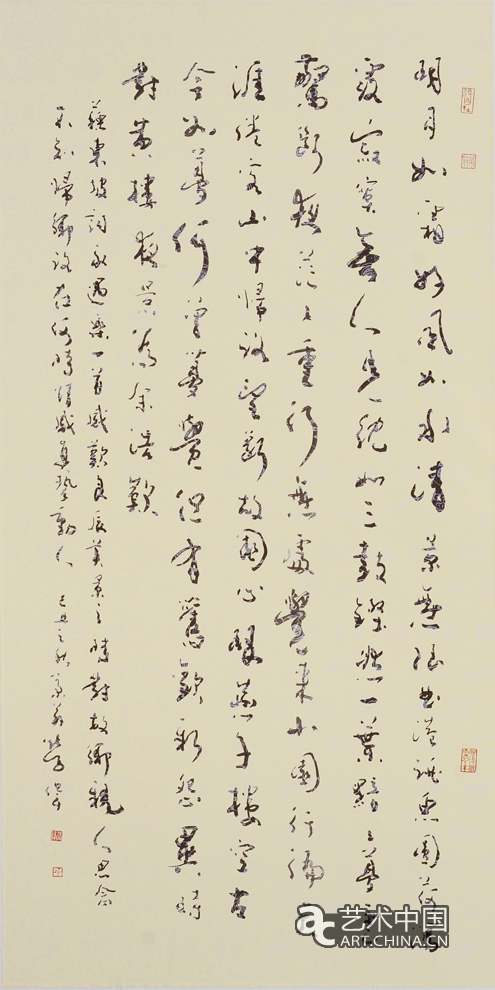 明月如霜好風如水清景無限曲港跳魚圓荷瀉
露寂寞無人見紞如三鼓鏗然一葉黯々夢雲
驚斷夜茫々重尋無處覺來小園行遍
涯倦客山中歸路望斷故園心眼燕子樓空古
今如夢何曾夢覺但有舊歡新怨異時
對黃樓夜景為余浩歎
蘇東坡詞永遇樂一首感歎良辰美景之時對故鄉親人思念
不知歸鄉路在何時情感真摯動人 己丑之秋
艺术中国
ART.CHINA.CN